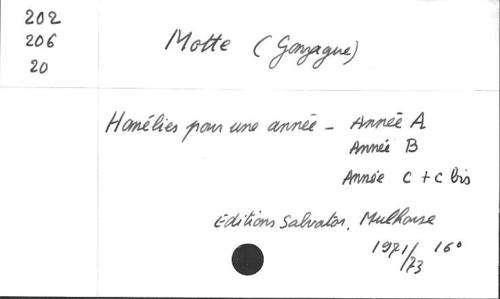 202
206
20
Motte (Gonzague)
Homélies pour une année - Année A
Année B
Année C + C bis
Editions Salvator, Mulhouse
1971/73 16°